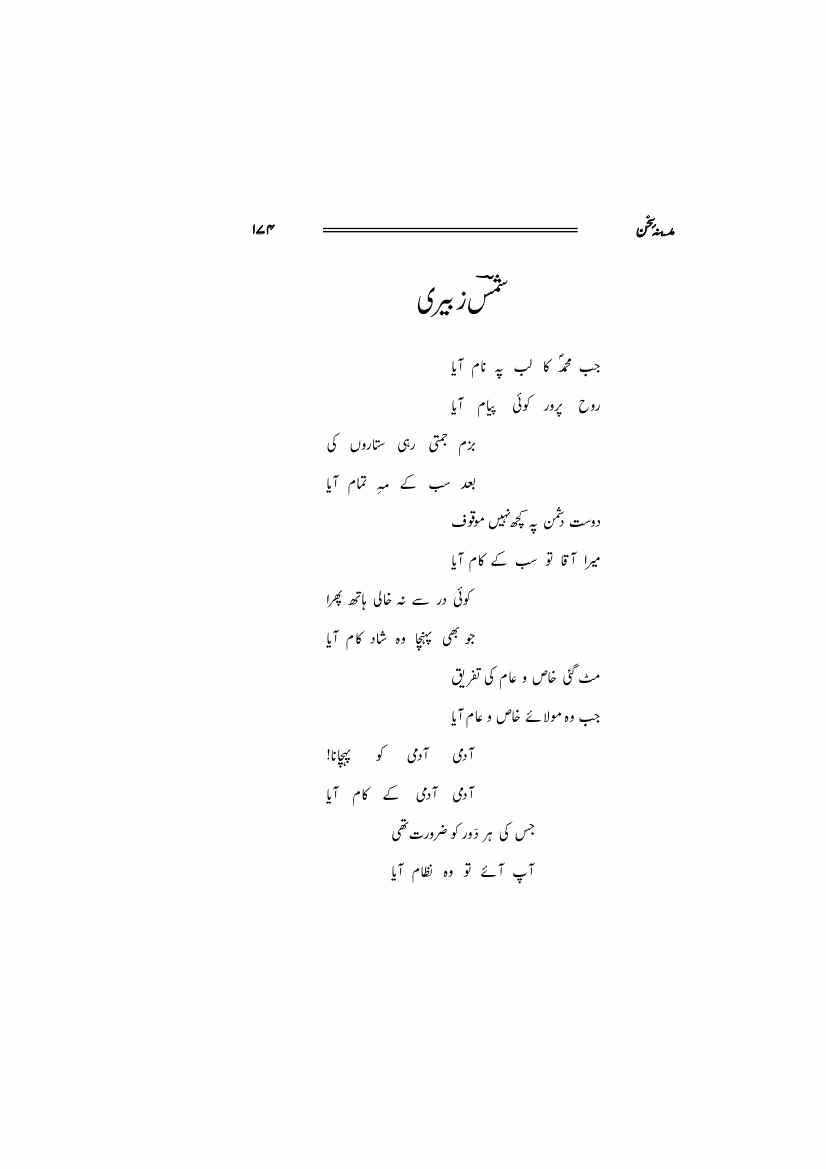 مدینۂ سخن ۱۷۴
شمسؔ زبیری
جب محمدؐ کا لب پہ نام آیا
روح پرور کوئی پیام آیا
بزم جمتی رہی ستاروں کی
بعد سب کے مہِ تمام آیا
دوست دشمن پہ کچھ نہیں موقوف
میرا آقا تو سب کے کام آیا
کوئی در سے نہ خالی ہاتھ پھرا
جو بھی پہنچا وہ شاد کام آیا
مٹ گئی خاص و عام کی تفریق
جب وہ مولائے خاص و عام آیا
آدمی آدمی کو پہچانا!
آدمی آدمی کے کام آیا
جس کی ہر دَور کو ضرورت تھی
آپ آئے تو وہ نظام آیا